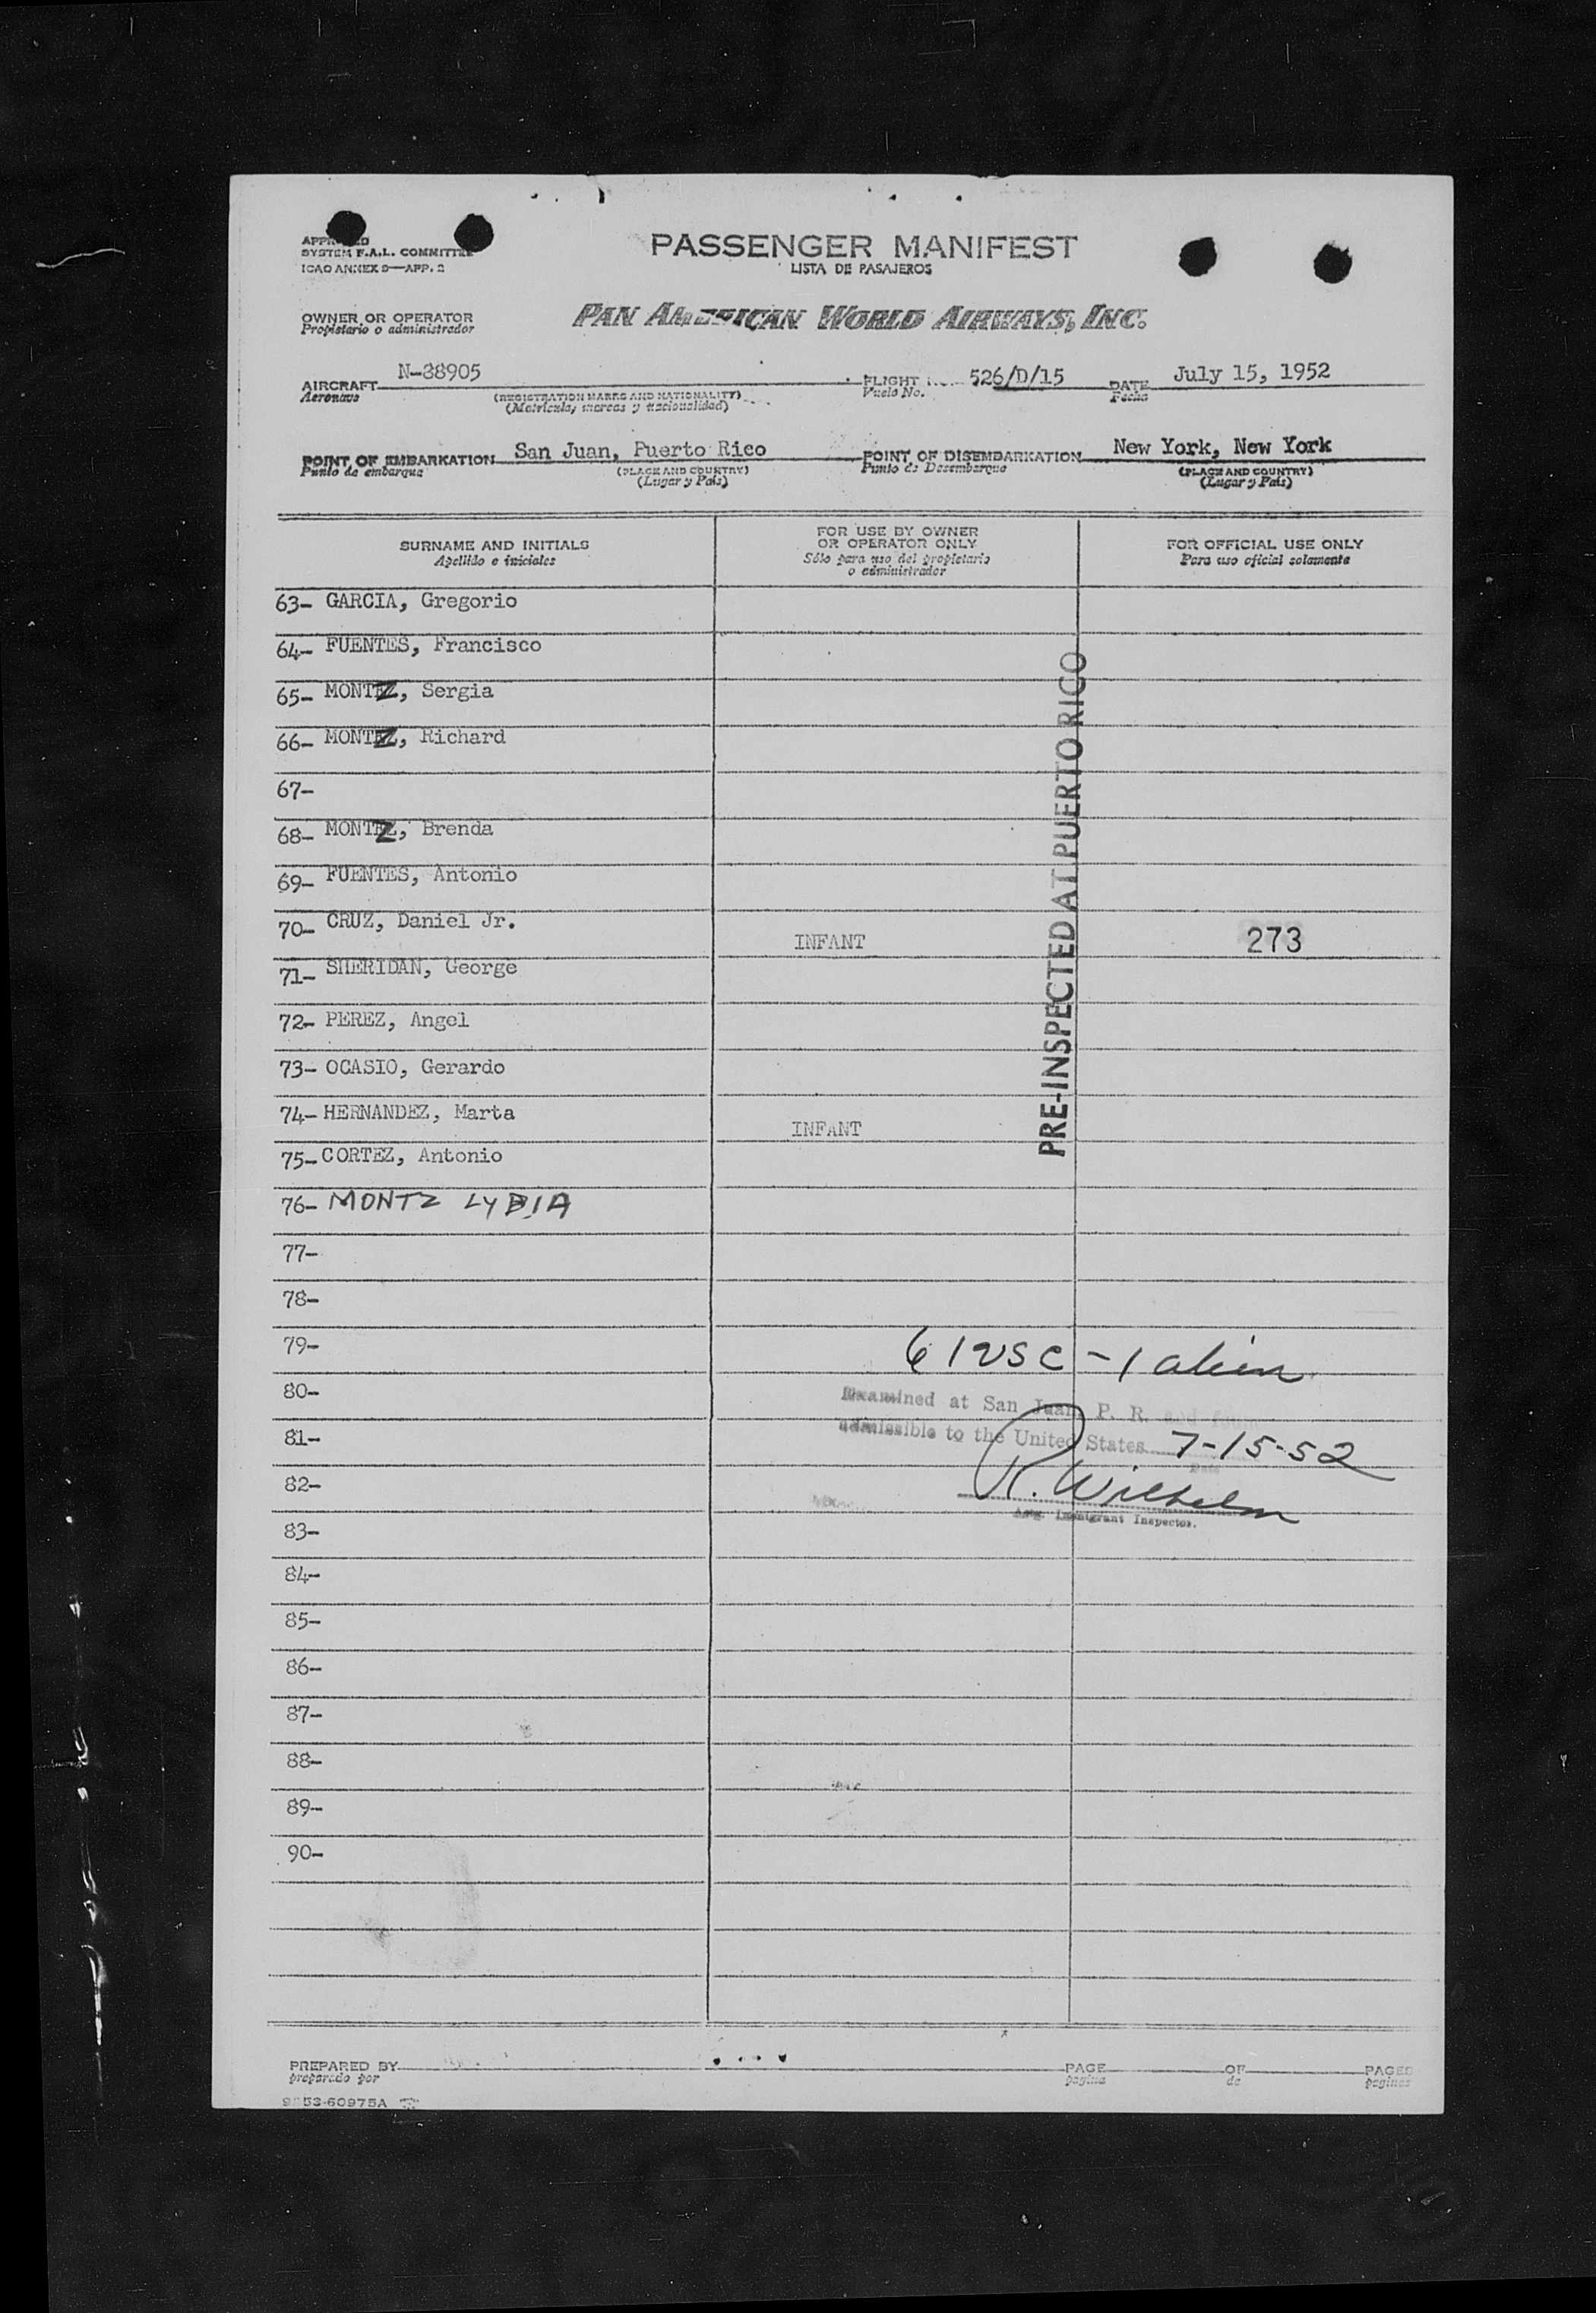 PASSENGER MANIFEST
LISTA DE PASAJEROS
SYSTEM F.A.L. COMMITTEE
ICAO ANNEX 9—APP. 2
OWNER OR OPERATOR
Propietario o administrador
PAN AMERICAN WORLD AIRWAYS, INC.
AIRCRAFT N-88905 FLIGHT 526/D/15 DATE July 15, 1952
Aeronave (REGISTRATION MARKS AND NATIONALITY) Vuelo No. Fecha
(Matrícula, marcas y nacionalidad)
POINT OF EMBARKATION San Juan, Puerto Rico POINT OF DISEMBARKATION New York, New York
Punto de embarque (PLACE AND COUNTRY) Punto de Desembarque (PLACE AND COUNTRY)
(Lugar y País) (Lugar y País)
SURNAME AND INITIALS
Apellido e iniciales
FOR USE BY OWNER
OR OPERATOR ONLY
Sólo para uso del propietario
o administrador
FOR OFFICIAL USE ONLY
Para uso oficial solamente
63- GARCIA, Gregorio
64- FUENTES, Francisco
65- MONTZ, Sergia
66- MONTZ, Richard
67-
68- MONTZ, Brenda
69- FUENTES, Antonio
70- CRUZ, Daniel Jr. INFANT 273
71- SHERIDAN, George
72- PEREZ, Angel
73- OCASIO, Gerardo
74- HERNANDEZ, Marta INFANT
75- CORTEZ, Antonio
76- MONTZ LYBIA
77-
78-
79-
80-
81-
82-
83-
84-
85-
86-
87-
88-
89-
90-
PRE-INSPECTED AT PUERTO RICO
61 USC - 1 alien
Examined at San Juan, P. R. and found
admissible to the United States 7-15-52
Date
R. Wilhelm
Immigrant Inspector.
PREPARED BY PAGE OF PAGES
preparado por pagina de paginas